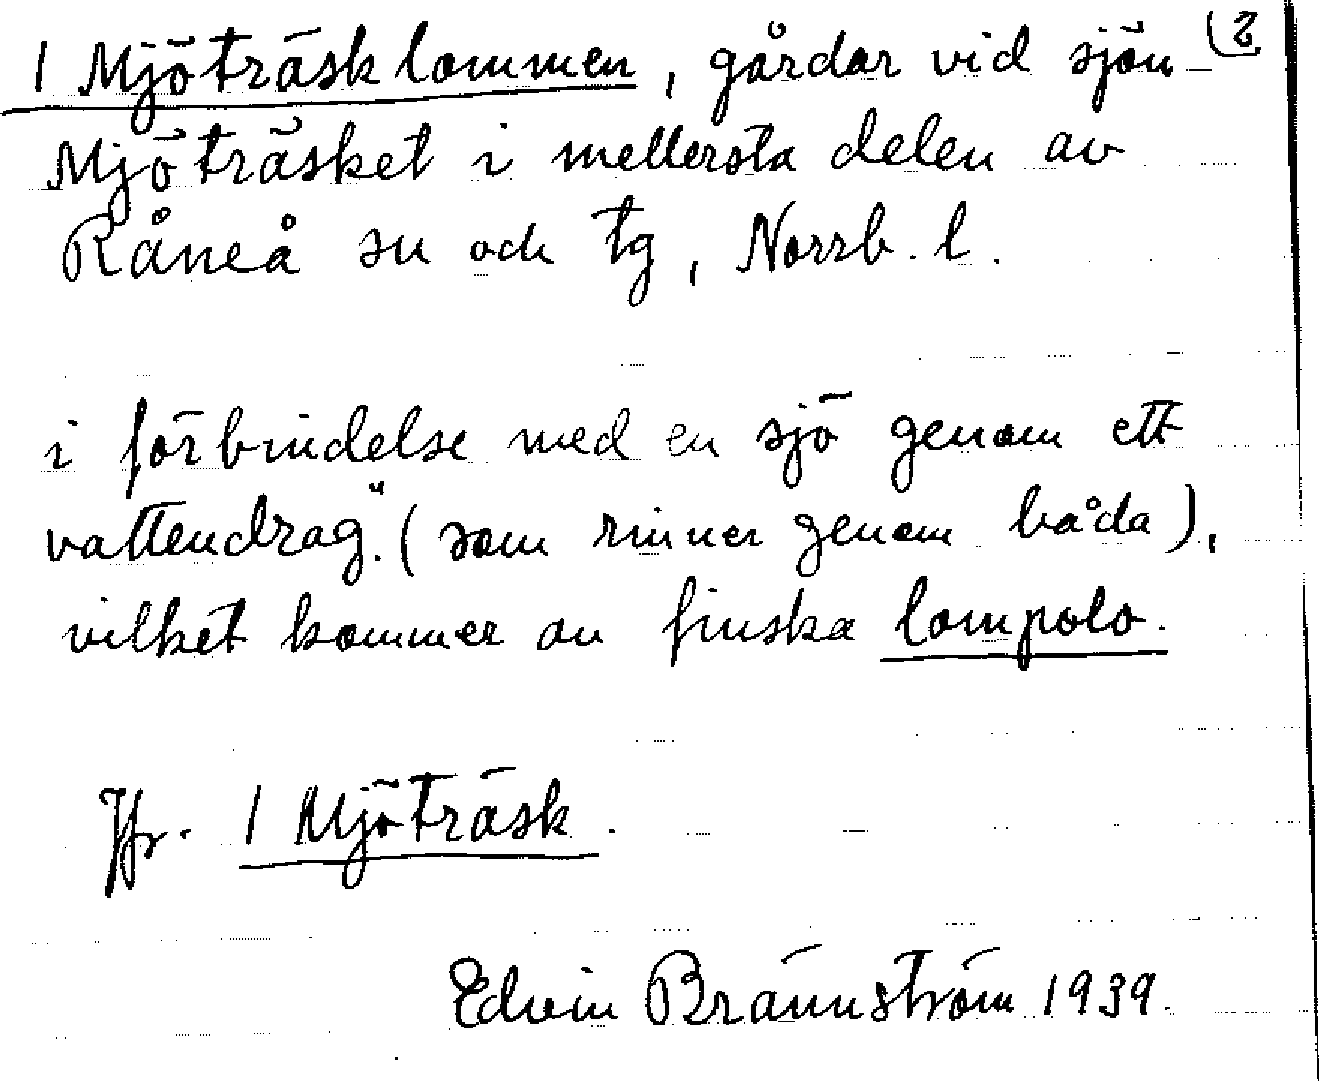 1 Mjöträsklommen, gårdar vid sjön (2
Mjöträsket i mellersta delen av
Råneå sn och tg, Norrb. l.
i förbindelse med en sjö genom ett
vattendrag." (som rinner genom båda),
vilket kommer av finska lompolo.
Jfr. 1 Mjöträsk.
Edvin Brännström 1939.